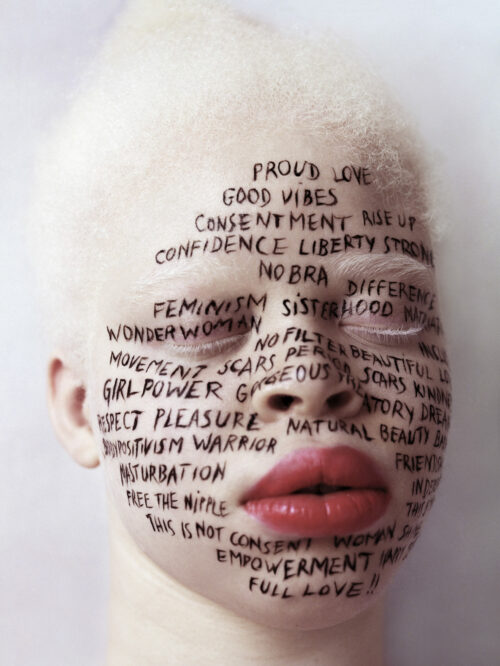 PROUD LOVE
GOOD VIBES
CONSENTMENT RISE UP
CONFIDENCE LIBERTY STRONG
NO BRA
DIFFERENCE
FEMINISM SISTERHOOD
WONDER WOMAN
NO FILTER BEAUTIFUL
MOVEMENT SCARS PERIOD SCARS
GIRLPOWER
RESPECT PLEASURE NATURAL BEAUTY
BODYPOSITIVISM WARRIOR
MASTURBATION
FREE THE NIPPLE
THIS IS NOT CONSENT WOMAN
EMPOWERMENT
FULL LOVE !!